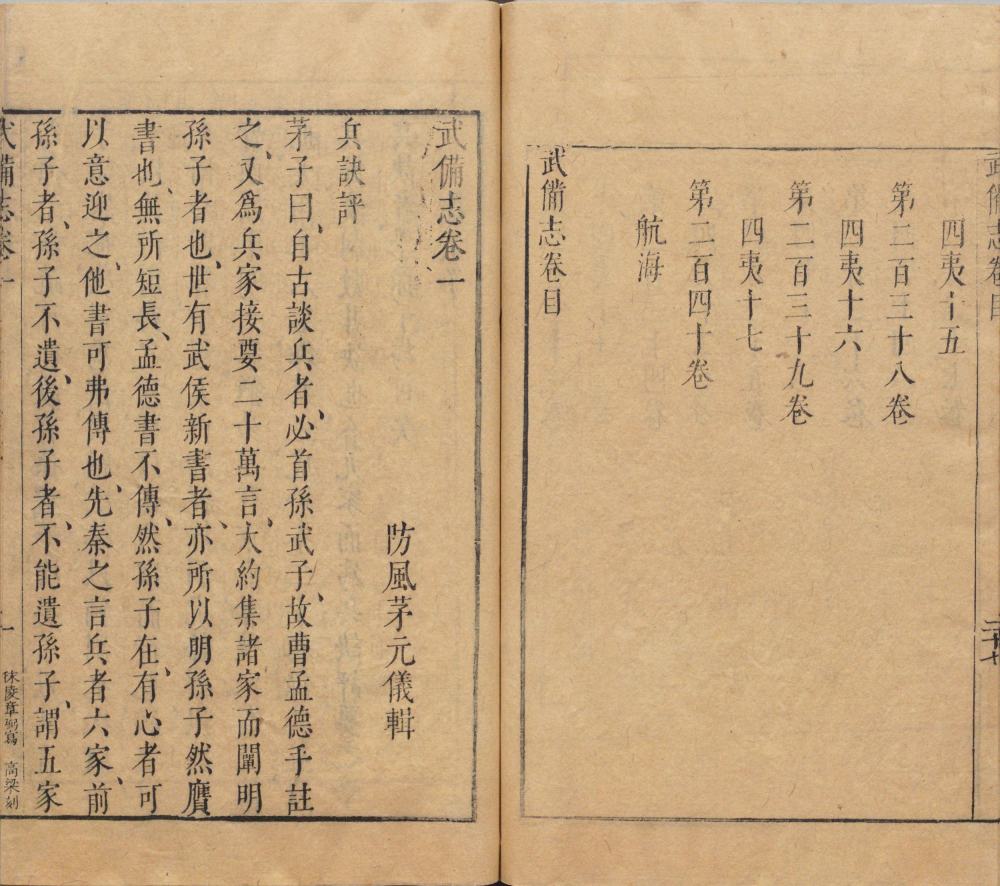 武備志卷目
二十七
四夷十五
第二百三十八卷
四夷十六
第二百三十九卷
四夷十七
第二百四十卷
航海
武備志卷目
武備志卷一
防風茅元儀輯
兵訣評
茅子曰、自古談兵者、必首孫武子、故曹孟德手註
之、又爲兵家接要二十萬言、大約集諸家而闡明
孫子者也、世有武侯新書者、亦所以明孫子然贋
書也、無所短長、孟德書不傳、然孫子在、有心者可
以意迎之、他書可弗傳也、先秦之言兵者六家、前
孫子者、孫子不遺、後孫子者、不能遺孫子、謂五家
武備志卷一
一
秣陵章弼寫 高梁刻